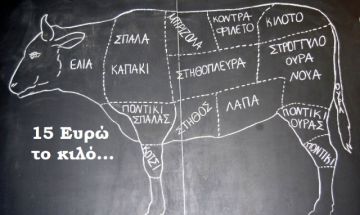 ΕΛΙΑ
ΣΠΑΛΑ
ΚΑΠΑΚΙ
ΜΠΡΙΖΟΛΑ
ΚΟΝΤΡΑ
ΦΙΛΕΤΟ
ΚΙΛΟΤΟ
ΣΤΗΘΟΠΛΕΥΡΑ
ΣΤΡΟΓΓΥΛΟ
ΟΥΡΑ
ΝΟΥΑ
ΟΥΡΑ
ΠΟΝΤΙΚΙ
ΣΠΑΛΑΣ
ΣΤΗΘΟΣ
ΛΑΠΑ
ΠΟΝΤΙΚΙ
ΟΥΡΑΣ
ΚΟΤΣΙ
ΠΟΝΤΙΚΙ
15 Ευρώ
το κιλό...